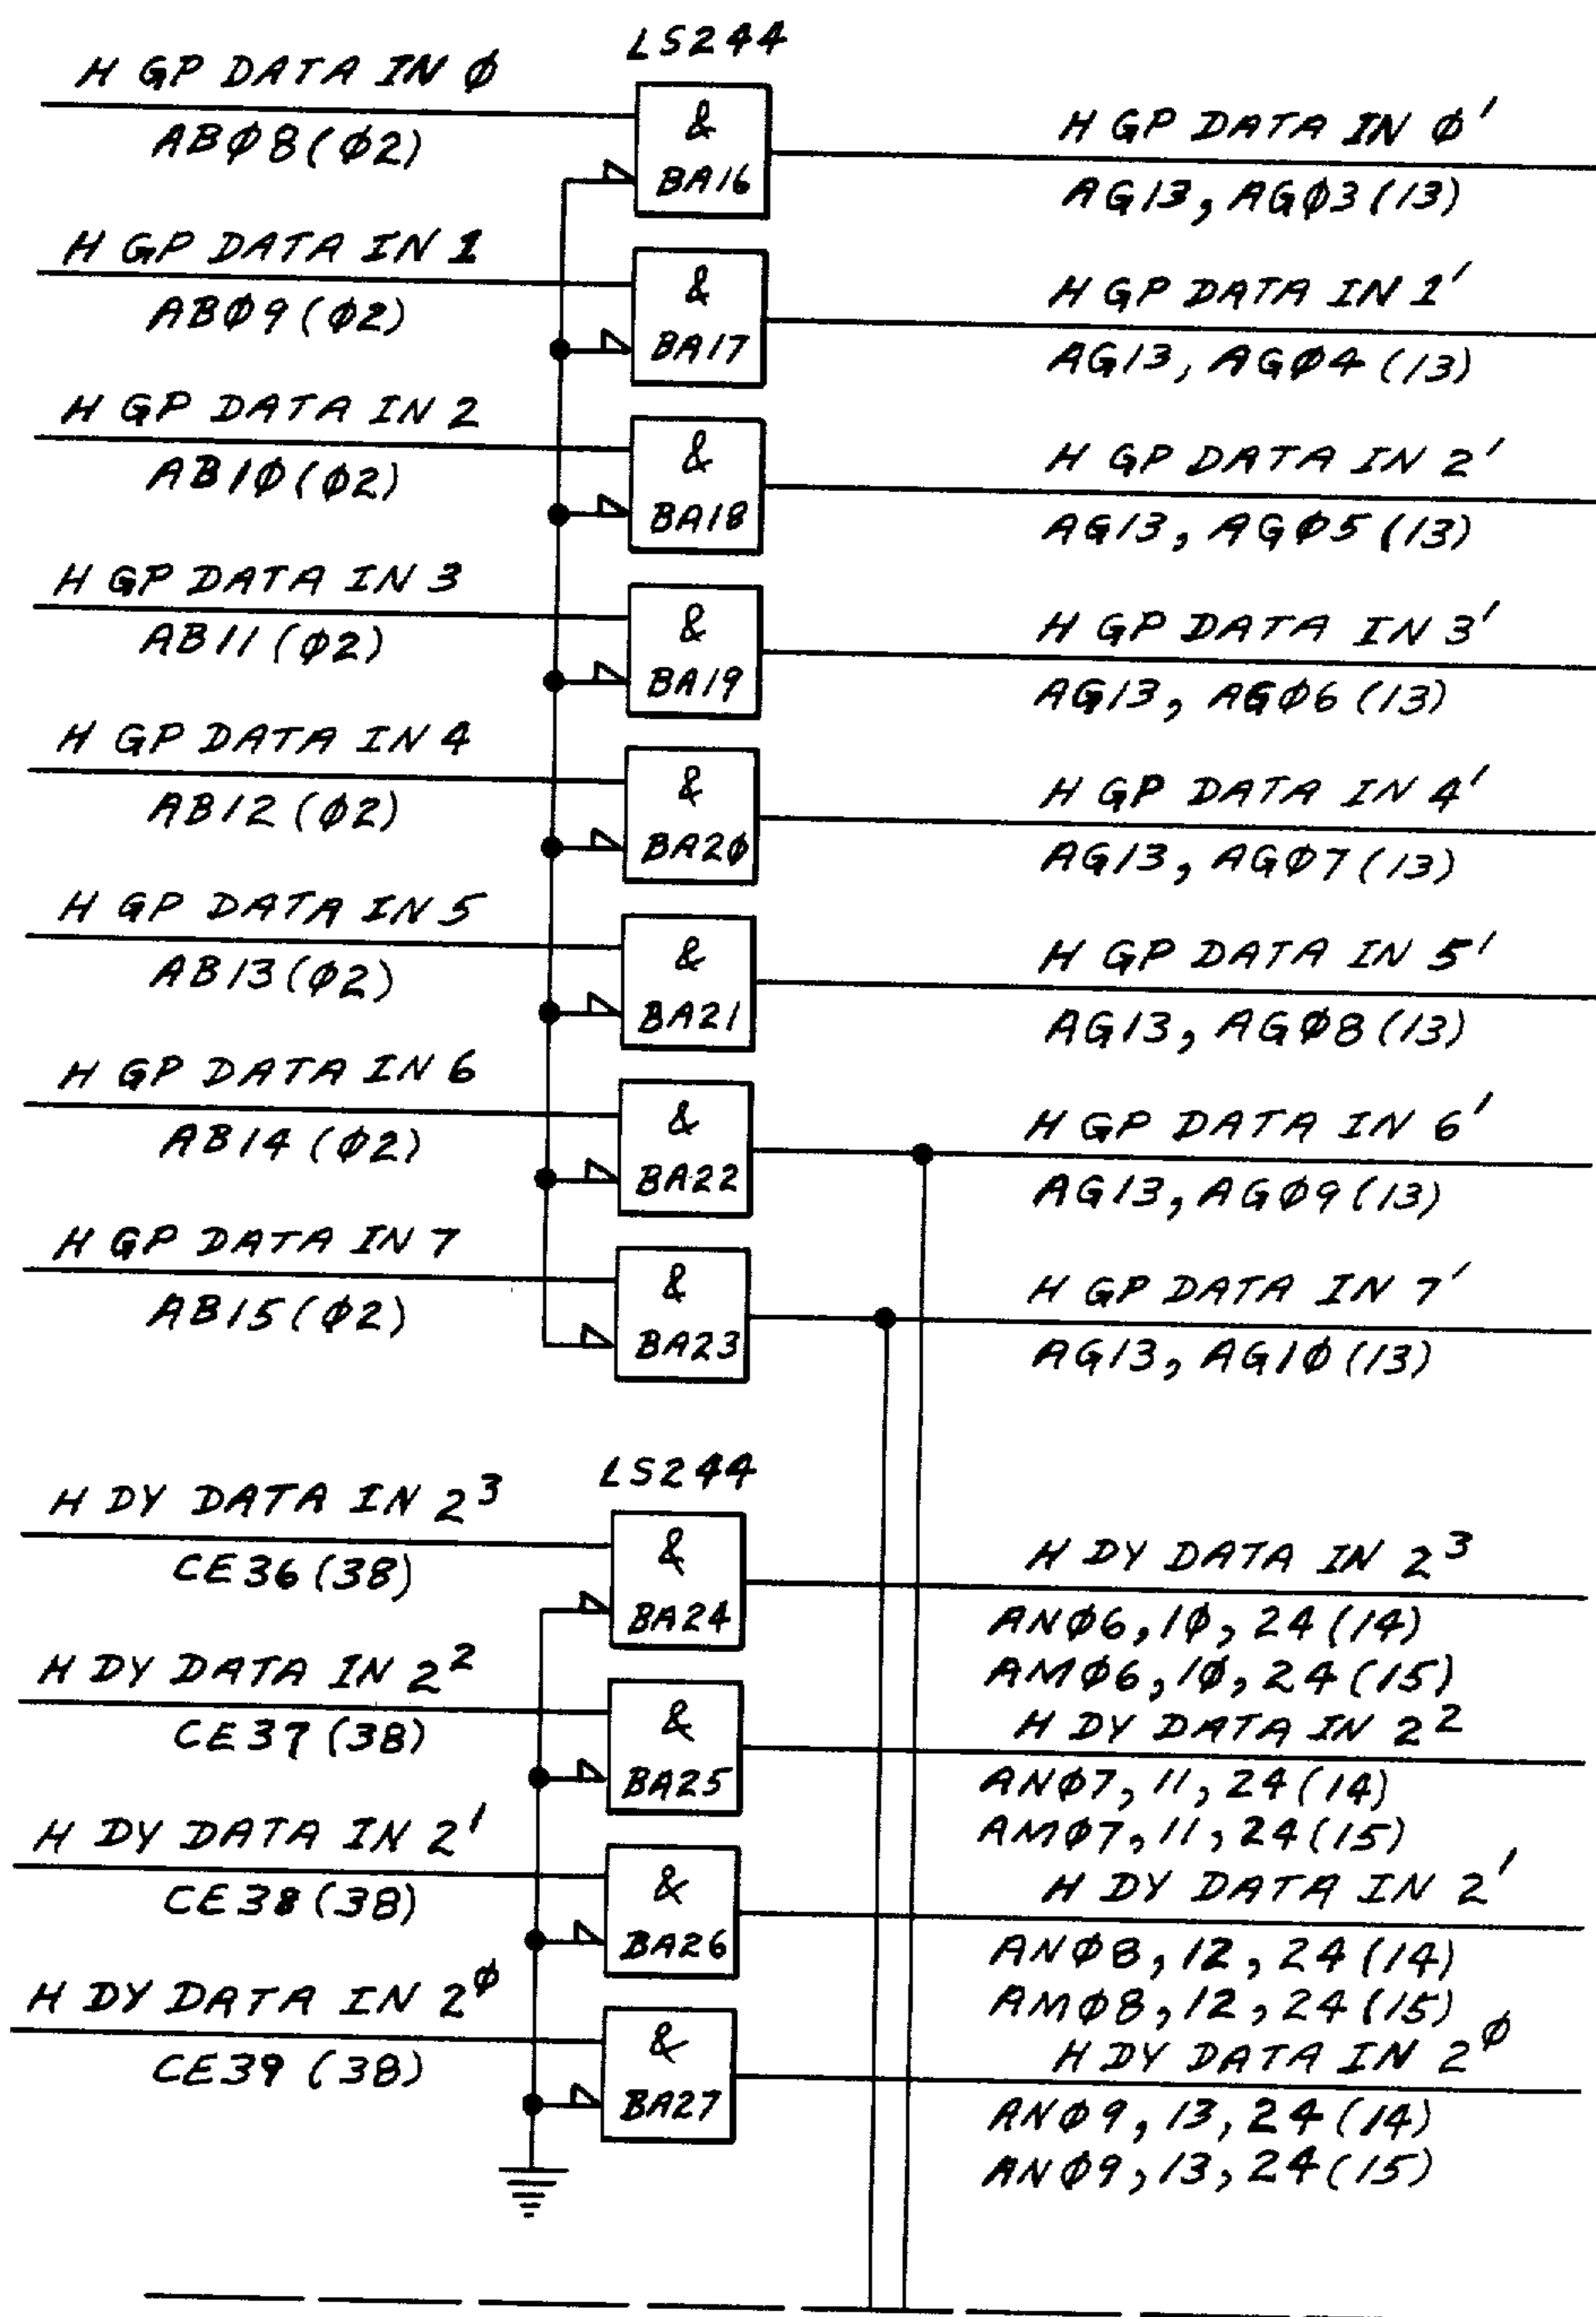 LS244
H GP DATA IN φ
ABφ8(φ2)
&
BA16
H GP DATA IN φ'
AG13, AGφ3(13)
H GP DATA IN 1
ABφ9(φ2)
&
BA17
H GP DATA IN 1'
AG13, AGφ4(13)
H GP DATA IN 2
AB1φ(φ2)
&
BA18
H GP DATA IN 2'
AG13, AGφ5(13)
H GP DATA IN 3
AB11(φ2)
&
BA19
H GP DATA IN 3'
AG13, AGφ6(13)
H GP DATA IN 4
AB12(φ2)
&
BA2φ
H GP DATA IN 4'
AG13, AGφ7(13)
H GP DATA IN 5
AB13(φ2)
&
BA21
H GP DATA IN 5'
AG13, AGφ8(13)
H GP DATA IN 6
AB14(φ2)
&
BA22
H GP DATA IN 6'
AG13, AGφ9(13)
H GP DATA IN 7
AB15(φ2)
&
BA23
H GP DATA IN 7'
AG13, AG1φ(13)
LS244
H DY DATA IN 2³
CE36(38)
&
BA24
H DY DATA IN 2³
ANφ6,1φ,24(14)
AMφ6,1φ,24(15)
H DY DATA IN 2²
CE37(38)
&
BA25
H DY DATA IN 2²
ANφ7,11,24(14)
AMφ7,11,24(15)
H DY DATA IN 2¹
CE38(38)
&
BA26
H DY DATA IN 2¹
ANφ8,12,24(14)
AMφ8,12,24(15)
H DY DATA IN 2^φ
CE39(38)
&
BA27
H DY DATA IN 2^φ
ANφ9,13,24(14)
ANφ9,13,24(15)